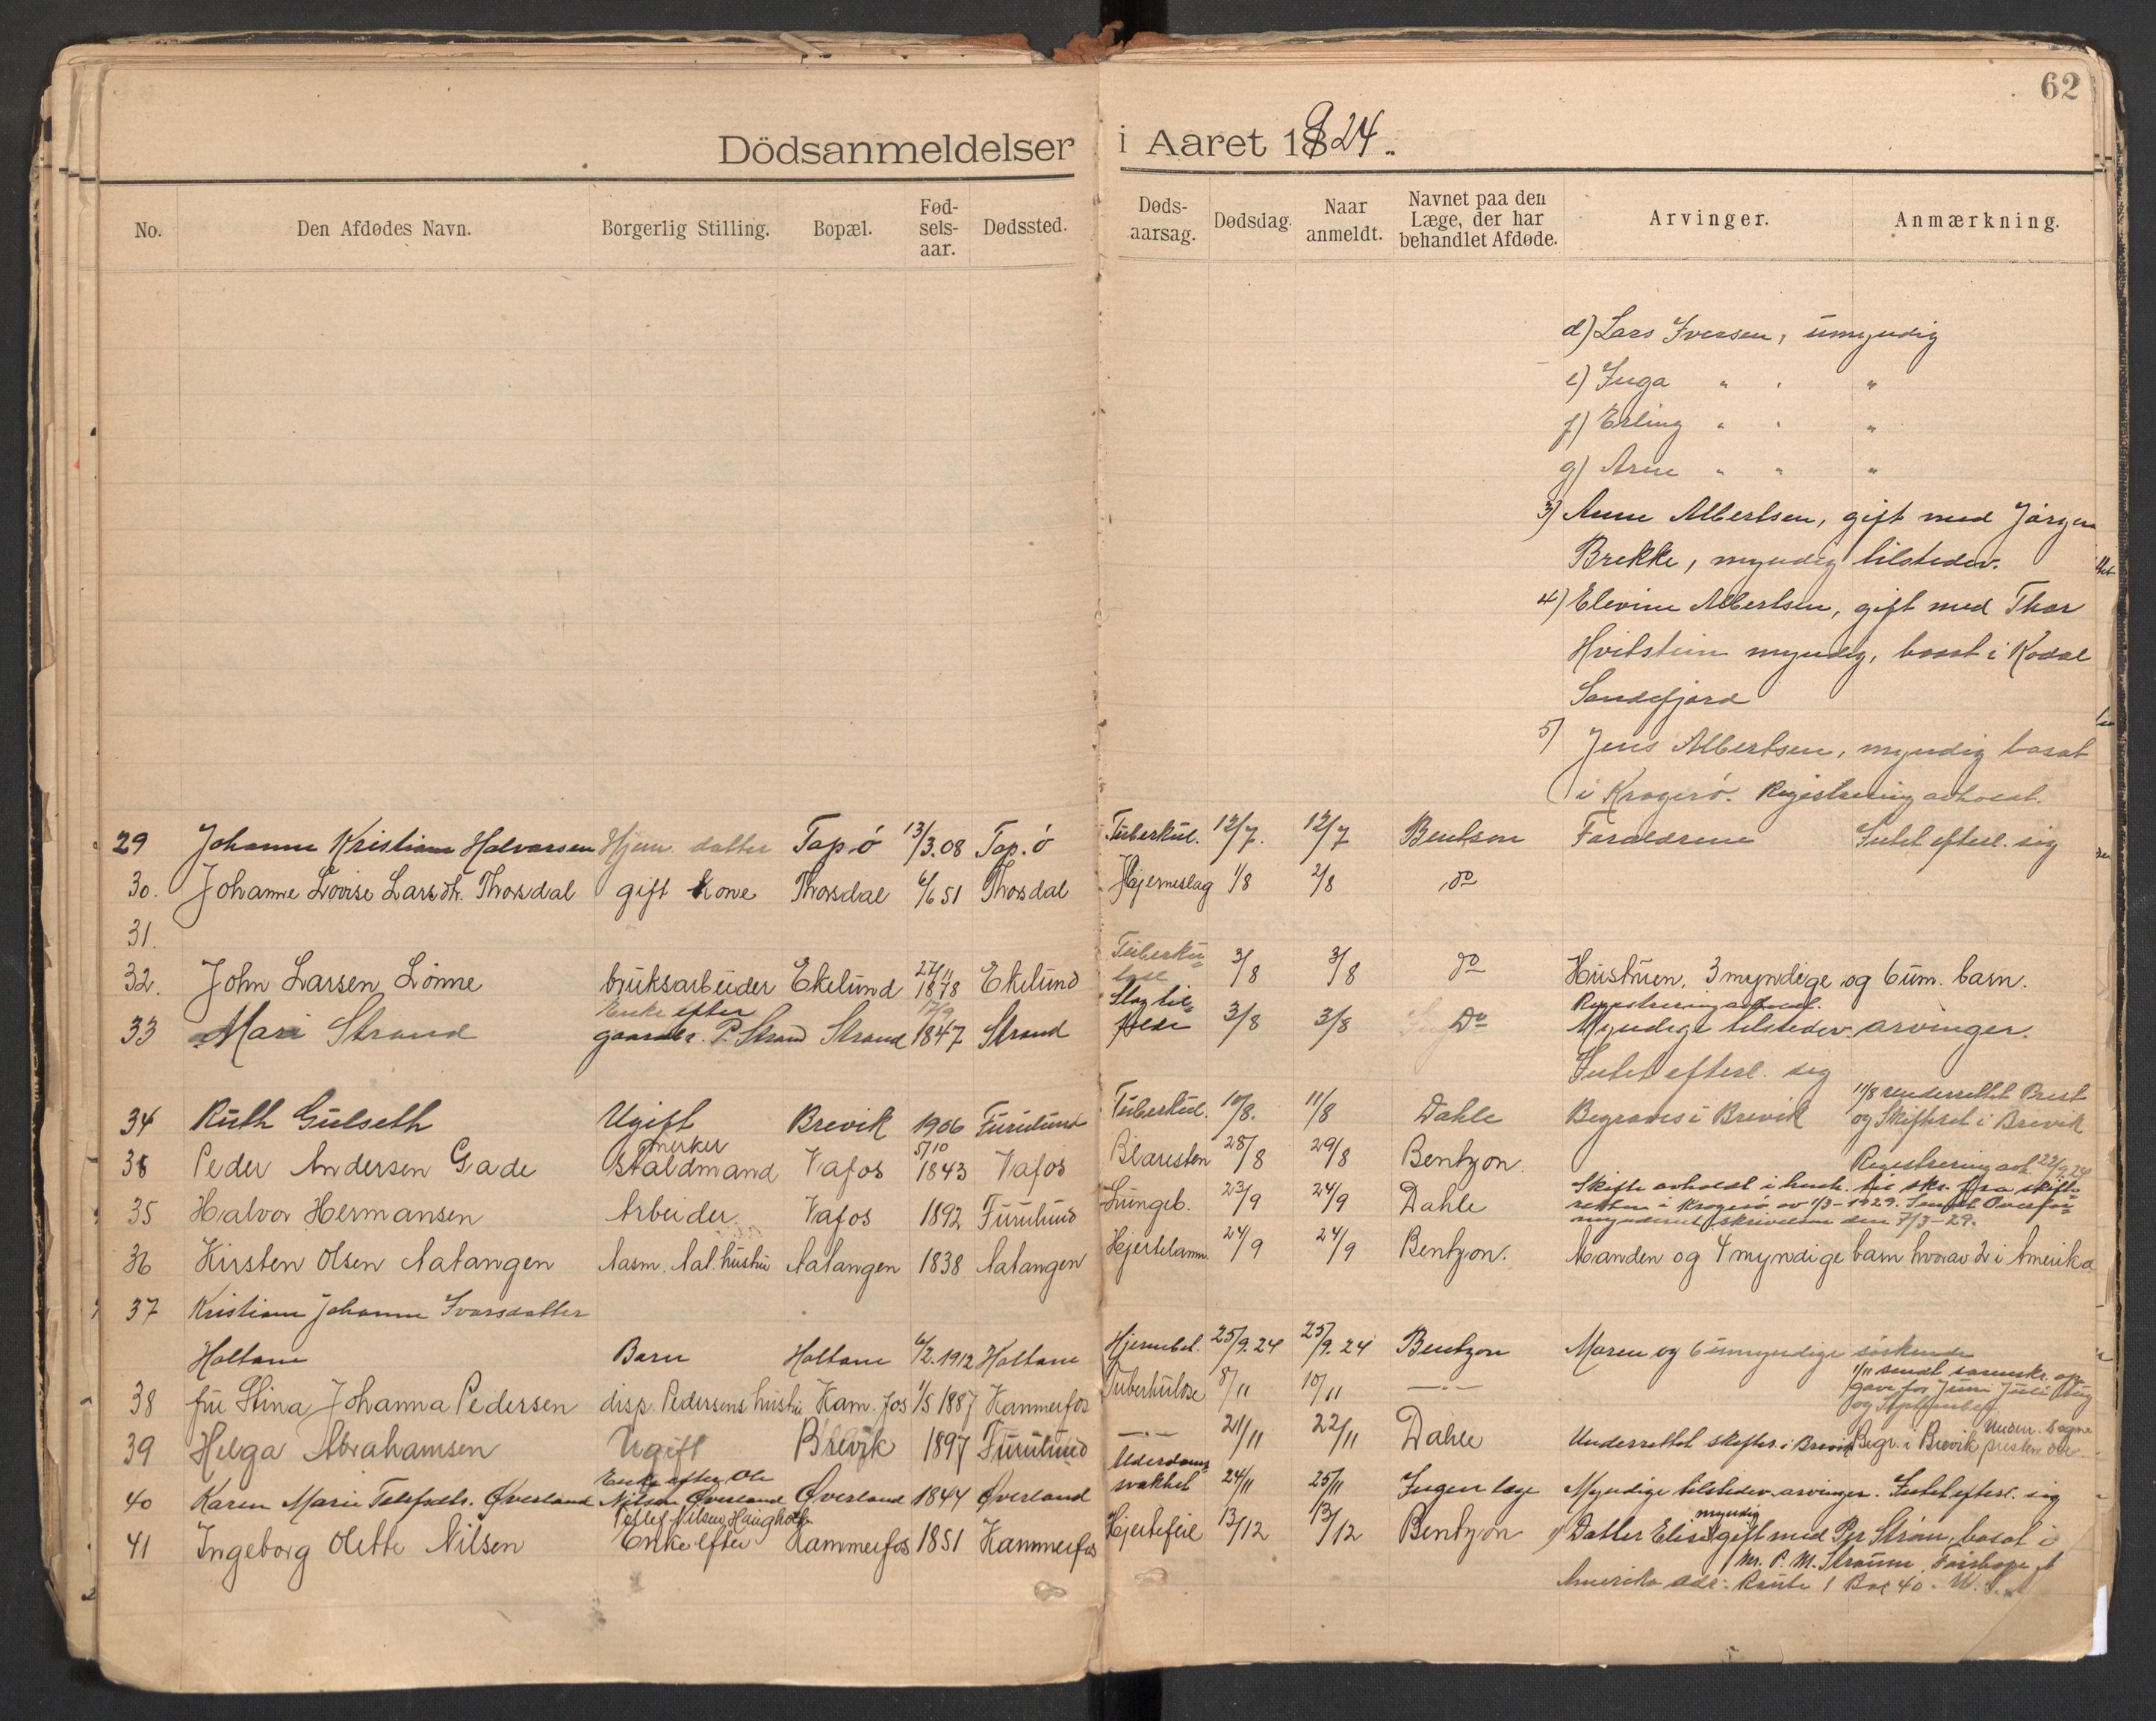 62
Dödsanmeldelser i Aaret 1924.
No. Den Afdødes Navn. Borgerlig Stilling. Bopæl. Fød-selsaar. Dødssted. Døds-aarsag. Dødsdag. Naar anmeldt. Navnet paa den Læge, der har behandlet Afdøde. Arvinger. Anmærkning.
d) Lars Iversen, umyndig
e) Inga " " "
f) Erling " " "
g) Arne " " "
3) Anne Albertsen, gift med Jörgen
Brekke, myndig tilstedev.
4) Elevine Albertsen, gift med Thor
Hvitstein myndig, bosat i Kodal
Sandefjord
5) Jens Albertsen, myndig bosat
i Kragerö. Registrering avholdt.
29 Johanne Kristiane Halvorsen Hjem. datter Tap.ö 13/3.08 Tap.ö Tuberkul. 12/7. 12/7 Bentson Forældrene Intet efterl. sig
30. Johanne Lovise Larsdtr. Thorsdal gift kone Thorsdal 6/6 51 Thorsdal Hjerneslag 1/8 2/8 do
31.
32. John Larsen Lönne bruksarbeider Ekelund 27/11 1878 Ekelund Tuberkulose 3/8 3/8 do Hustruen, 3 myndige og 6 um. barn.
Registrering avholdt.
33 Mari Strand Enke efter gaardbr. P. Strand Strand 17/9 1847 Strand Slagtilfelde 3/8 3/8 Do Myndige tilstedev. arvinger.
Intet efterl. sig
34 Ruth Gulseth Ugift Brevik 1906 Furulund Tuberkul. 10/8. 11/8 Dahle Begraves i Brevik 11/8 underrettet Prest og Skifteret i Brevik
36 Peder Andersen Gade merker staldmand Vafos 5/10 1843 Vafos Blæresten 28/8 29/8 Bentzon Registrering avh. 22/9 24
35 Halvor Hermansen Arbeider Vafos 1892 Furulund Lungeb. 23/9 24/9 Dahle Skifte avholdt i henh. til skr. fra skifteretten i Kragerö av 1/3-1929. Sendt Overformynderiet skrivelse den 7/3-29.
36 Kirsten Olsen Aatangen Aasm. Aat. hustru Aatangen 1838 Aatangen Hjertelam. 24/9 24/9 Bentzon. Manden og 4 myndige barn hvorav 2 i Amerika
37 Kristiane Johanne Ivarsdatter
Holtane Barn Holtane 6/2.1912 Holtane Hjernebet. 25/9.24 25/9.24 Bentzon Moren og 6 umyndige söskende
38 fru Stina Johanna Pedersen disp. Pedersens hustru Kam.fos 1/5 1887 Kammerfos Tuberkulose 8/11 10/11 —"— 1/11 sendt opgave for Juni Juli Aug og September.
39 Helga Abrahamsen Ugift Brevik 1897 Furulund —"— 21/11 22/11 Dahle Underrettet skifter. i Brevik Begr. i Brevik Underr. Sogneprest
40 Karen Marie Tellefsdtr. Øverland Enke efter Ole Nilsen Øverland Øverland 1844 Øverland Alderdomssvakhet 24/11 25/11 Ingen læge Myndige tilstedev. arvinger. Intet efterl. sig
41 Ingeborg Olette Nilsen Enke efter Tellef Nilsen Haugholt Kammerfos 1851 Kammerfos Hjertefeil 13/12 13/12 Bentzon 1) Datter Elise myndig gift med Per Ström, bosat i
Amerika adr: Mr. P. M. Straum, Fairhope Route 1 Box 40.